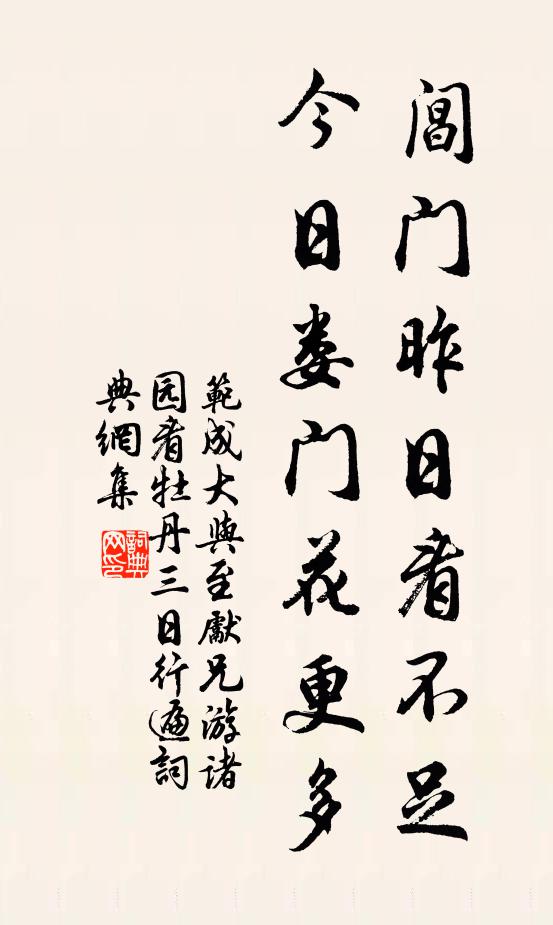 阊门昨日看不足
今日娄门花更多
範成大與至獻兄游诸
园看牡丹三日行遍詞
典網集
詞典
网印